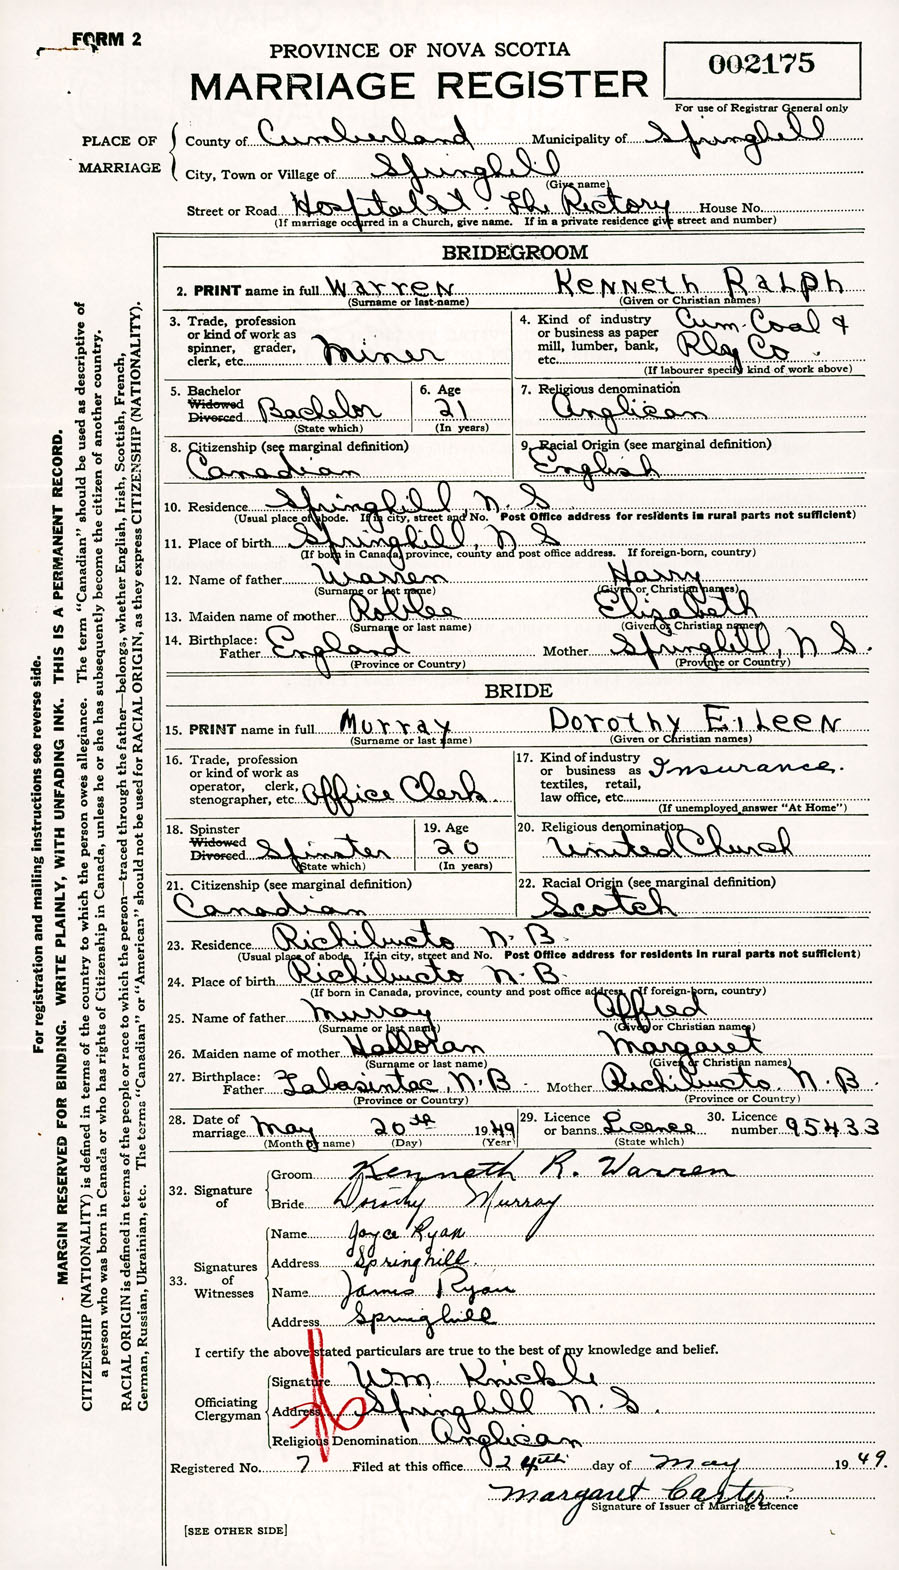 FORM 2
PROVINCE OF NOVA SCOTIA
MARRIAGE REGISTER
002175
For use of Registrar General only
PLACE OF MARRIAGE
County of Cumberland Municipality of Springhill
City, Town or Village of Springhill
(Give name)
Street or Road Hospital St The Rectory House No.
(If marriage occurred in a Church, give name. If in a private residence give street and number)
BRIDEGROOM
2. PRINT name in full Warren Kenneth Ralph
(Surname or last name) (Given or Christian names)
3. Trade, profession or kind of work as spinner, grader, clerk, etc. Miner
4. Kind of industry or business as paper mill, lumber, bank, etc. Cum. Coal & Rly Co.
(If labourer specify kind of work above)
5. Bachelor Widowed Divorced Bachelor
(State which)
6. Age 21
(In years)
7. Religious denomination Anglican
8. Citizenship (see marginal definition) Canadian
9. Racial Origin (see marginal definition) English
10. Residence Springhill N. S
(Usual place of abode. If in city, street and No. Post Office address for residents in rural parts not sufficient)
11. Place of birth Springhill, N S
(If born in Canada, province, county and post office address. If foreign-born, country)
12. Name of father Warren Harry
(Surname or last name) (Given or Christian names)
13. Maiden name of mother Roblee Elizabeth
(Surname or last name) (Given or Christian names)
14. Birthplace: Father England Mother Springhill, N S.
(Province or Country) (Province or Country)
BRIDE
15. PRINT name in full Murray Dorothy Eileen
(Surname or last name) (Given or Christian names)
16. Trade, profession or kind of work as operator, clerk, stenographer, etc. Office Clerk
17. Kind of industry or business as textiles, retail, law office, etc. Insurance.
(If unemployed answer "At Home")
18. Spinster Widowed Divorced Spinster
(State which)
19. Age 20
(In years)
20. Religious denomination United Church
21. Citizenship (see marginal definition) Canadian
22. Racial Origin (see marginal definition) Scotch
23. Residence Richibucto N. B.
(Usual place of abode. If in city, street and No. Post Office address for residents in rural parts not sufficient)
24. Place of birth Richibucto N. B.
(If born in Canada, province, county and post office address. If foreign-born, country)
25. Name of father Murray Alfred
(Surname or last name) (Given or Christian names)
26. Maiden name of mother Halloran Margaret
(Surname or last name) (Given or Christian names)
27. Birthplace: Father Tabasintac N.B. Mother Richibucto. N. B.
(Province or Country) (Province or Country)
28. Date of marriage May 20th 1949
(Month by name) (Day) (Year)
29. Licence or banns Licence
(State which)
30. Licence number 95433
32. Signature of
Groom Kenneth R. Warren
Bride Dorothy Murray
33. Signatures of Witnesses
Name Joyce Ryan
Address Springhill.
Name James Ryan
Address Springhill
I certify the above stated particulars are true to the best of my knowledge and belief.
Officiating Clergyman
Signature Wm. Knickle
Address Springhill N. S.
Religious Denomination Anglican
Registered No. 7 Filed at this office 24th day of May 1949.
Margaret Carter
Signature of Issuer of Marriage Licence
[SEE OTHER SIDE]
For registration and mailing instructions see reverse side.
MARGIN RESERVED FOR BINDING. WRITE PLAINLY, WITH UNFADING INK. THIS IS A PERMANENT RECORD.
CITIZENSHIP (NATIONALITY) is defined in terms of the country to which the person owes allegiance. The term "Canadian" should be used as descriptive of
a person who was born in Canada or who has rights of Citizenship in Canada, unless he or she has subsequently become the citizen of another country.
RACIAL ORIGIN is defined in terms of the people or race to which the person—traced through the father—belongs, whether English, Irish, Scottish, French,
German, Russian, Ukrainian, etc. The terms "Canadian" or "American" should not be used for RACIAL ORIGIN, as they express CITIZENSHIP (NATIONALITY).